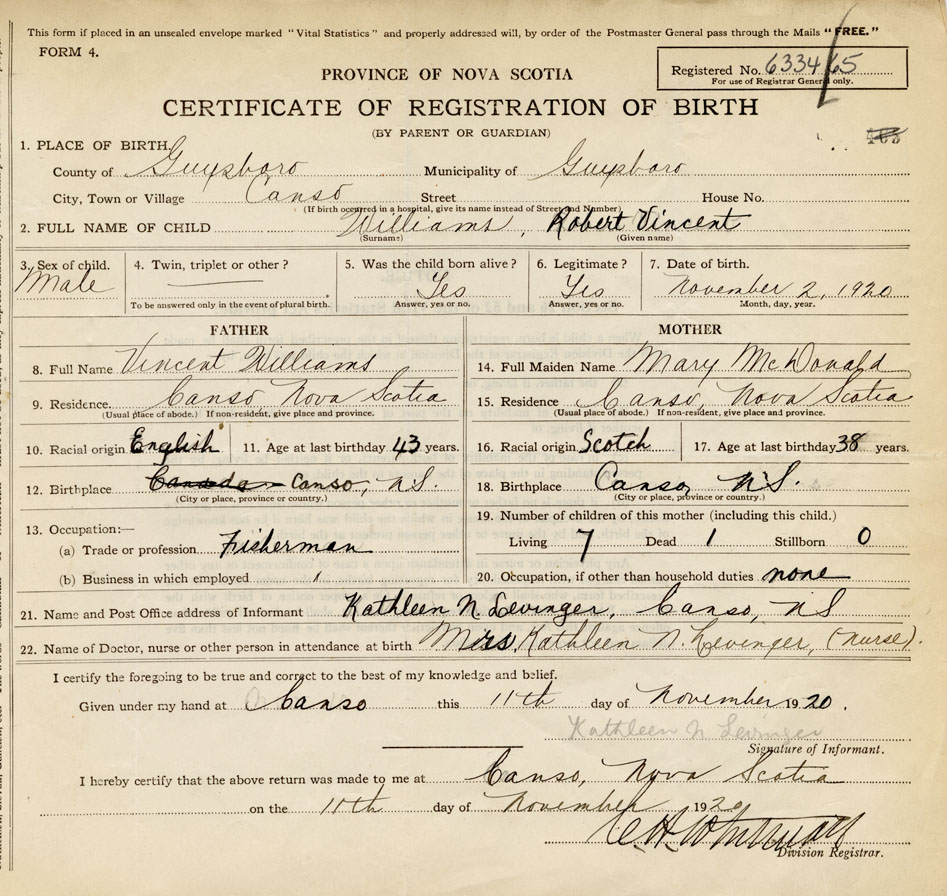 This form if placed in an unsealed envelope marked "Vital Statistics" and properly addressed will, by order of the Postmaster General pass through the Mails "FREE."
FORM 4.
Registered No. 6334/65
For use of Registrar General only.
PROVINCE OF NOVA SCOTIA
CERTIFICATE OF REGISTRATION OF BIRTH
(BY PARENT OR GUARDIAN)
1. PLACE OF BIRTH
County of Guysboro Municipality of Guysboro
City, Town or Village Canso Street House No.
(If birth occurred in a hospital, give its name instead of Street and Number)
2. FULL NAME OF CHILD Williams, Robert Vincent
(Surname) (Given name)
3. Sex of child. 4. Twin, triplet or other? 5. Was the child born alive? 6. Legitimate? 7. Date of birth.
Male Yes Yes November 2, 1920
To be answered only in the event of plural birth. Answer, yes or no. Answer, yes or no. Month, day, year.
FATHER MOTHER
8. Full Name Vincent Williams 14. Full Maiden Name Mary McDonald
9. Residence. Canso Nova Scotia 15. Residence Canso, Nova Scotia
(Usual place of abode.) If non-resident, give place and province. (Usual place of abode.) If non-resident, give place and province.
10. Racial origin English 11. Age at last birthday 43 years. 16. Racial origin Scotch 17. Age at last birthday 38 years.
12. Birthplace Canada - Canso, N.S. 18. Birthplace Canso, N.S.
(City or place, province or country.) (City or place, province or country.)
13. Occupation:— 19. Number of children of this mother (including this child.)
(a) Trade or profession Fisherman Living 7 Dead 1 Stillborn 0
(b) Business in which employed 20. Occupation, if other than household duties none
21. Name and Post Office address of Informant Kathleen N. Levinger, Canso, NS
22. Name of Doctor, nurse or other person in attendance at birth Miss. Kathleen N. Levinger, (nurse).
I certify the foregoing to be true and correct to the best of my knowledge and belief.
Given under my hand at Canso this 11th day of November 1920.
Kathleen N Levinger
Signature of Informant.
I hereby certify that the above return was made to me at Canso, Nova Scotia
on the 11th day of November 1920
Division Registrar.